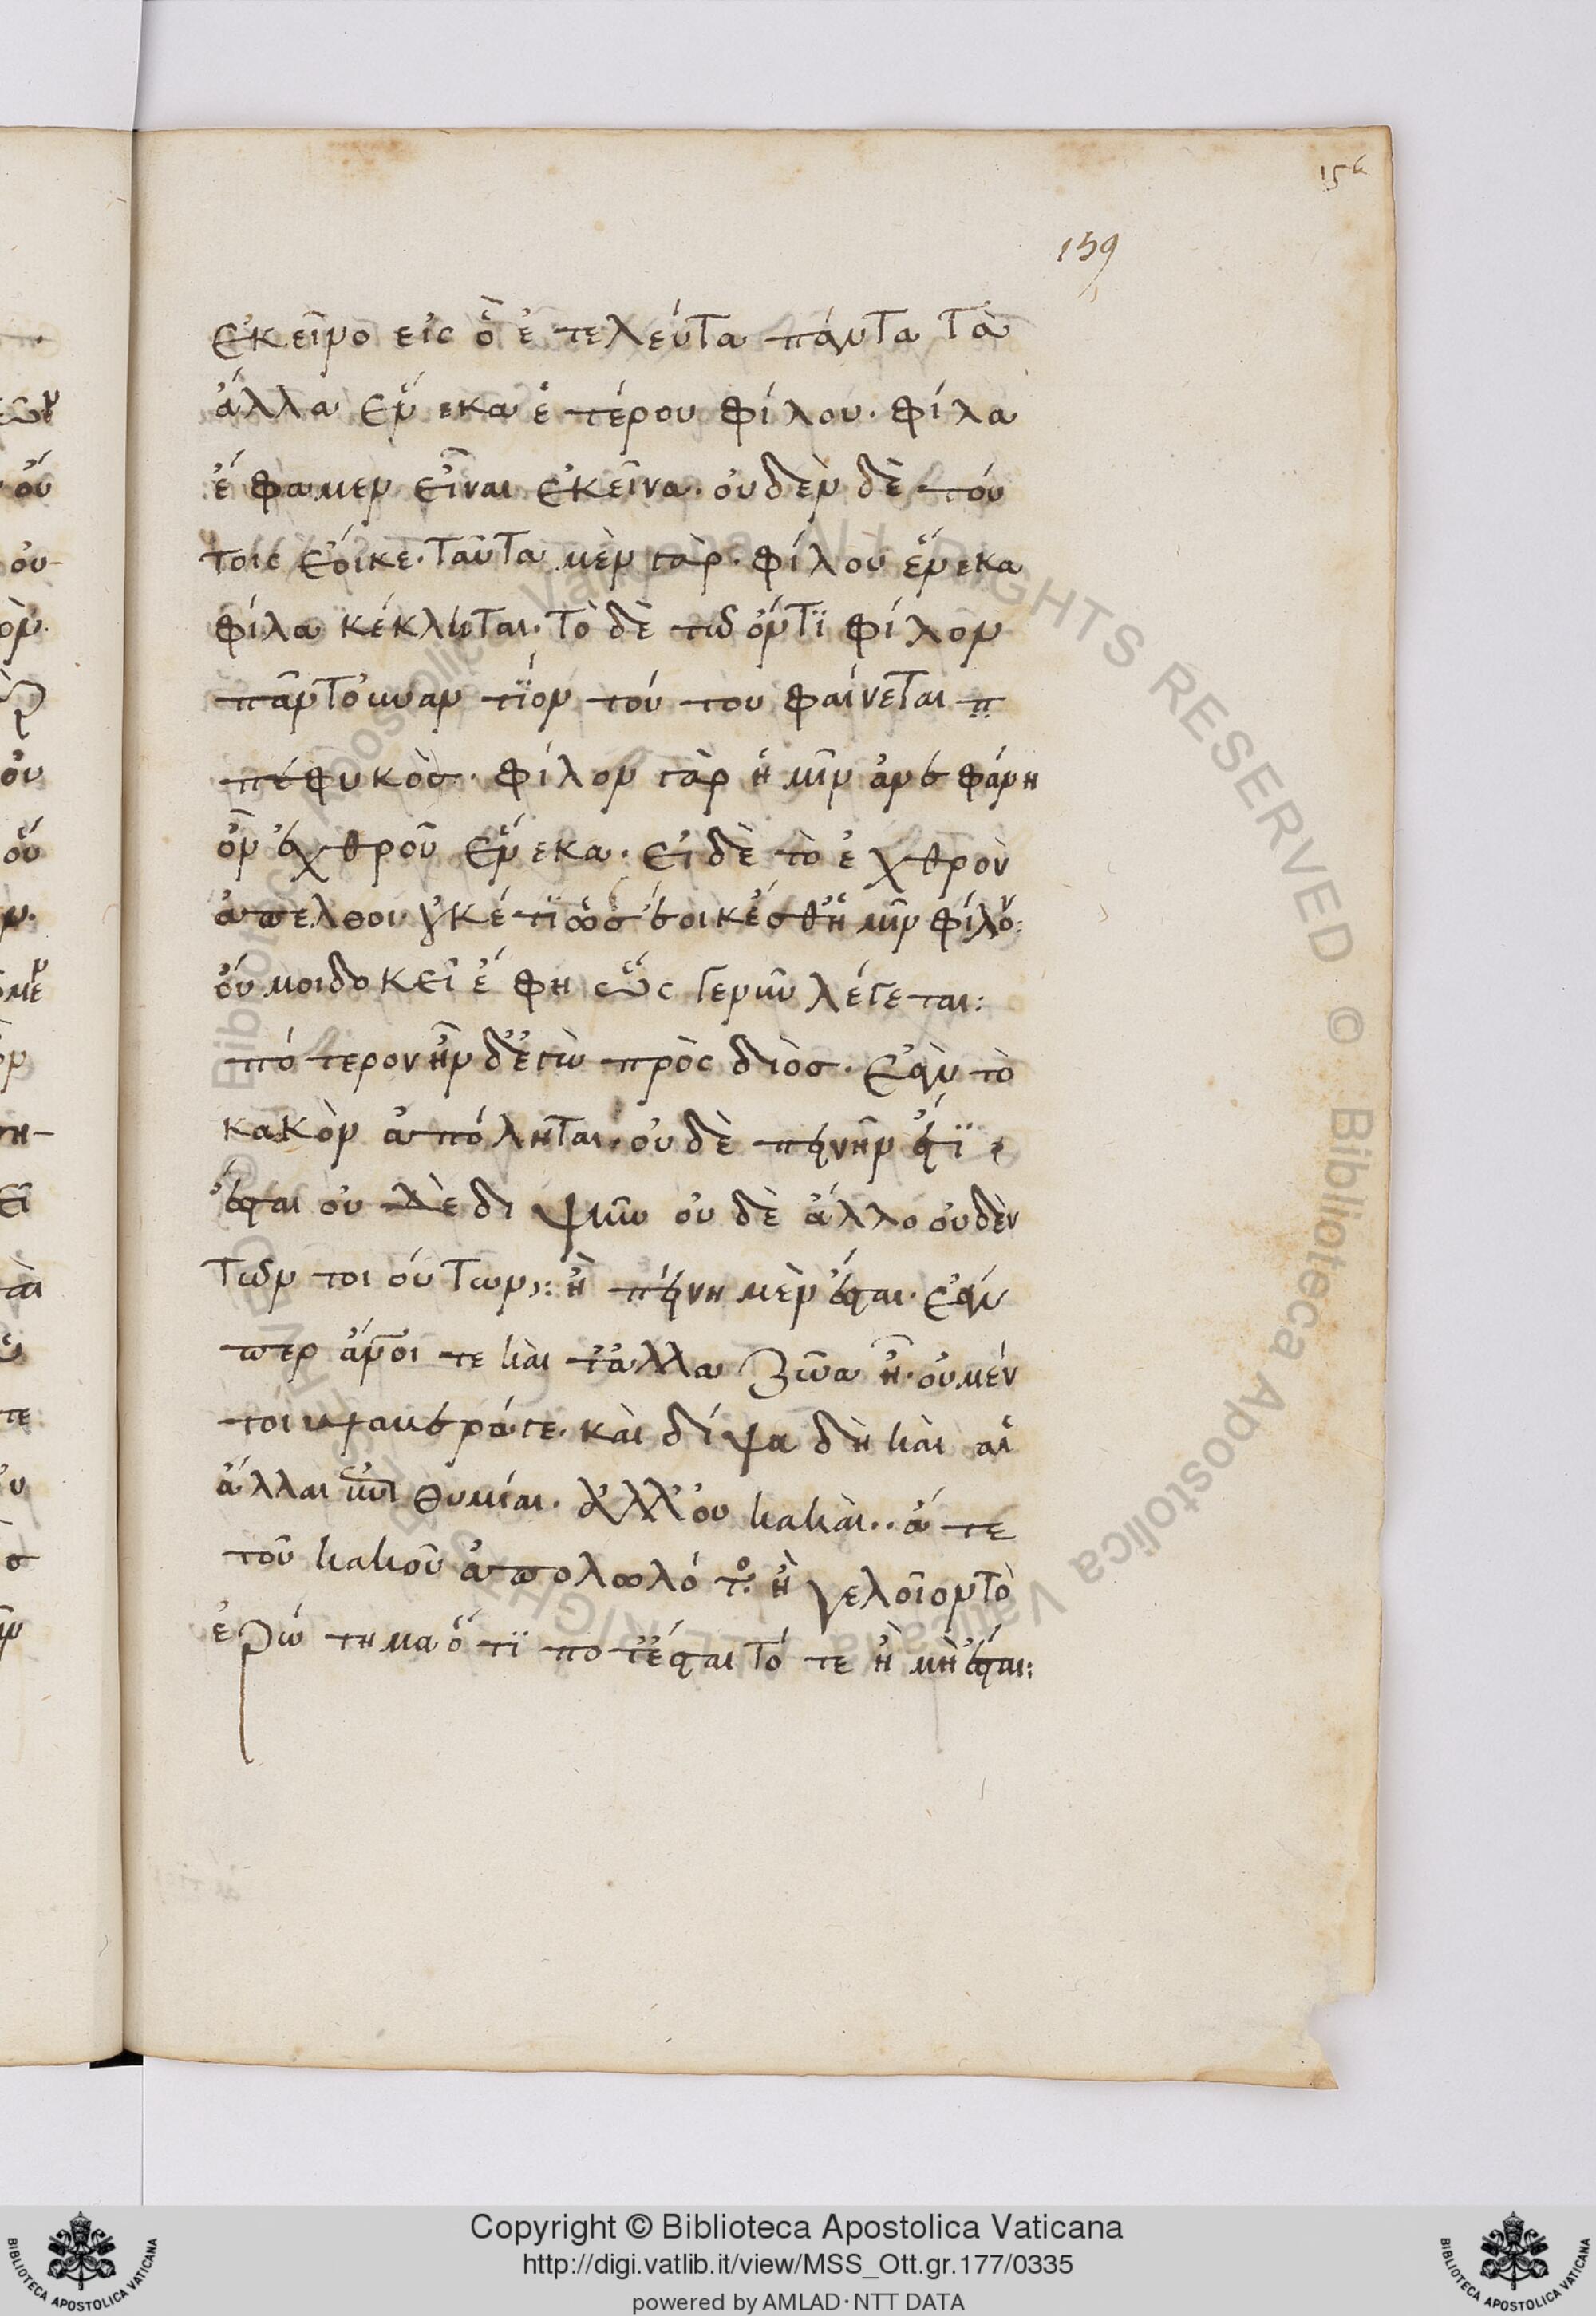 156
159
ἐκεῖνο εἰς ὃ ἐτελεύτα πάντα τὰ
ἄλλα ἕνεκα ἑτέρου φίλου. φίλα
ἔφαμεν εἶναι ἐκεῖνα. οὐδὲν δὲ τού
τοις ἔοικε. ταῦτα μὲν γὰρ. φίλου ἕνεκα
φίλα κέκληται. τὸ δὲ τῶ ὄντϊ φίλον
πᾶν τοὐναντίον τούτου φαίνεται π
πεφυκὸσ. φίλον γὰρ ἡμῖν ἀνεφάνη
ὂν ἐχθροῦ ἕνεκα. εἰ δὲ τὸ ἐχθρὸν
ἀπέλθοι οὐκέτϊ ὡσ ἔοικ' ἔσθ' ἡμῖν φίλον:
οὔ μοι δοκεῖ ἔφη ὥς γε νῦν λέγεται:
πότερον ἦν δ' ἐγὼ πρὸς διὸσ. ἐὰν τὸ
κακὸν ἀπόληται. οὐδὲ πεινῆν ἔτϊ
ἔσται οὐδὲ διψῆν οὐδὲ ἄλλο οὐδὲν
τῶν τοιούτων: ἢ πείνη μὲν ἔσται. ἐάν
περ ἄν̅οι τε καὶ τἆλλα ζῶα ἦ. οὐ μέν
τοι βλαβεράγε. καὶ δίψα δὴ καὶ αἱ
ἄλλαι ἐπιθυμίαι. ἀλλ' οὐ κακαὶ. ἅτε
τοῦ κακοῦ ἀπολωλότος: ἢ γελοῖον τὸ
ἐρώτημα ὅ τϊ ποτ' ἔσται τότε ἢ μὴ ἔσται:
Copyright © Biblioteca Apostolica Vaticana
http://digi.vatlib.it/view/MSS_Ott.gr.177/0335
powered by AMLAD·NTT DATA